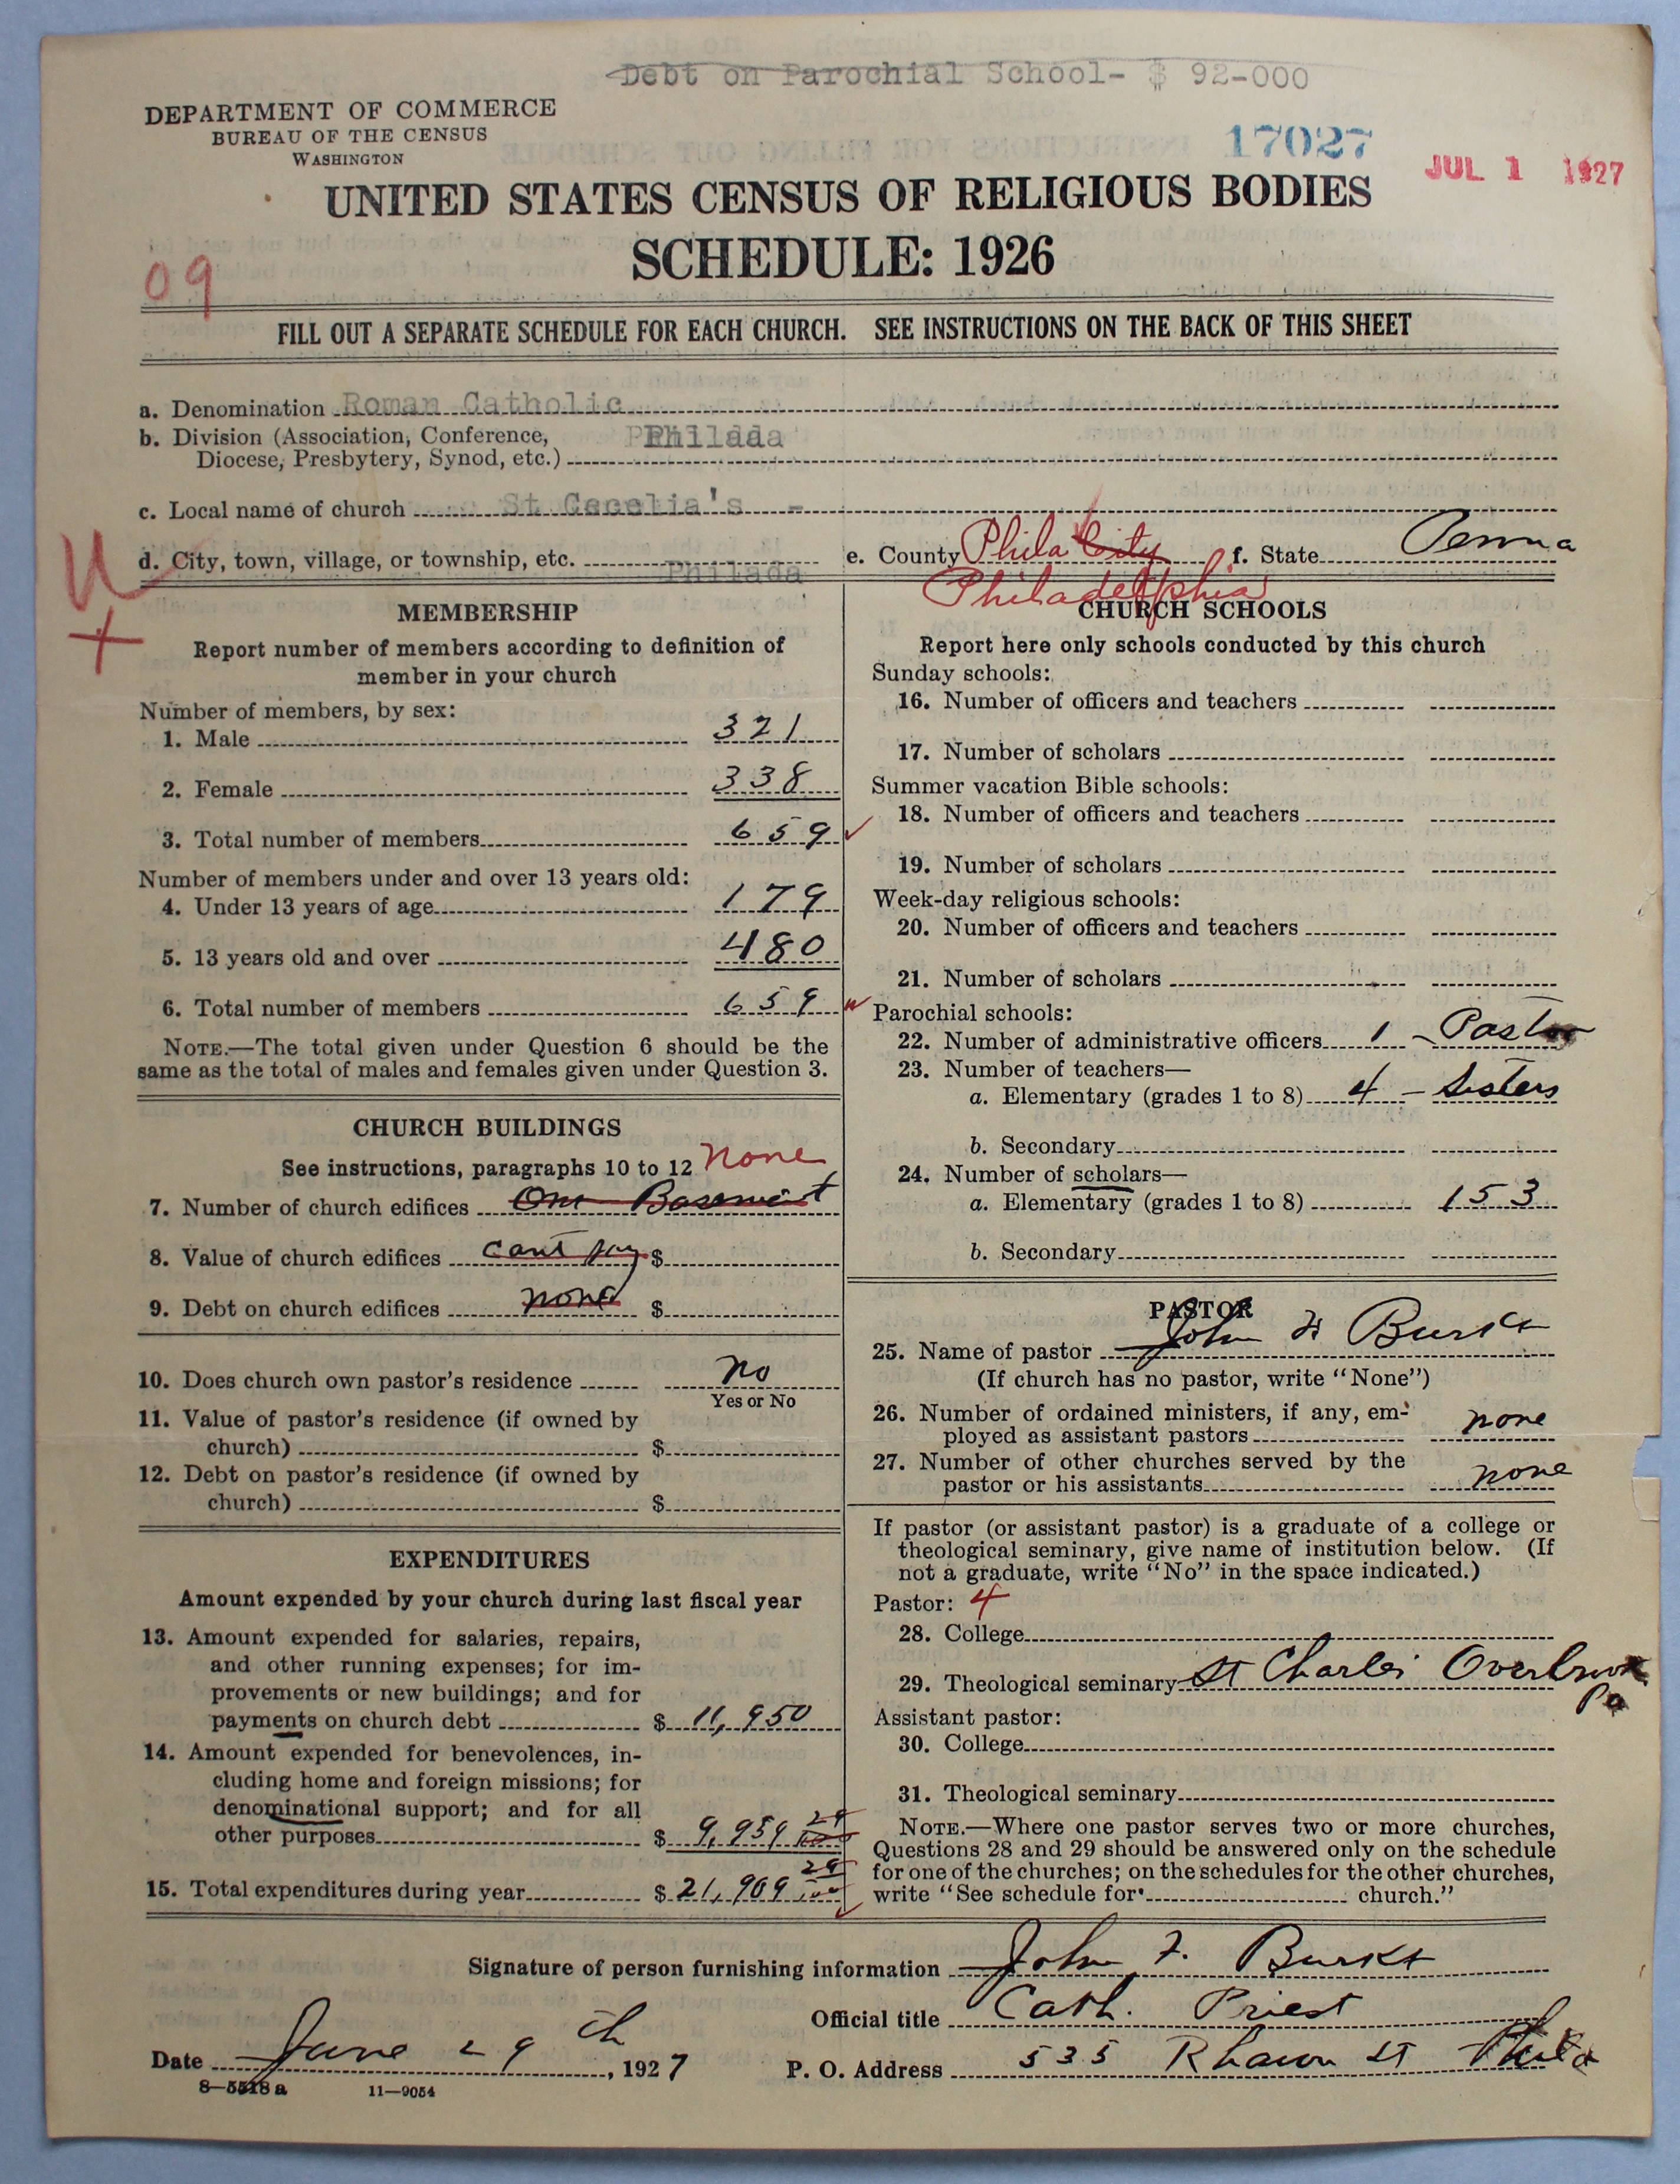 Debt on Parochial School- $ 92-000
DEPARTMENT OF COMMERCE
BUREAU OF THE CENSUS
WASHINGTON
17027
JUL 1 1927
UNITED STATES CENSUS OF RELIGIOUS BODIES
SCHEDULE: 1926
09
FILL OUT A SEPARATE SCHEDULE FOR EACH CHURCH. SEE INSTRUCTIONS ON THE BACK OF THIS SHEET
a. Denomination Roman Catholic
b. Division (Association, Conference, Philada
Diocese, Presbytery, Synod, etc.)
c. Local name of church St Cecelia's -
d. City, town, village, or township, etc. Philada e. County Phila City f. State Penna
Philadelphia
U
+
MEMBERSHIP
Report number of members according to definition of
member in your church
Number of members, by sex:
1. Male 321
2. Female 338
3. Total number of members 659
Number of members under and over 13 years old:
4. Under 13 years of age 179
5. 13 years old and over 480
6. Total number of members 659
NOTE.—The total given under Question 6 should be the
same as the total of males and females given under Question 3.
CHURCH BUILDINGS
See instructions, paragraphs 10 to 12 none
7. Number of church edifices One Basement
8. Value of church edifices cant say $
9. Debt on church edifices none $
10. Does church own pastor's residence no
Yes or No
11. Value of pastor's residence (if owned by
church) $
12. Debt on pastor's residence (if owned by
church) $
EXPENDITURES
Amount expended by your church during last fiscal year
13. Amount expended for salaries, repairs,
and other running expenses; for im-
provements or new buildings; and for
payments on church debt $ 11,950
14. Amount expended for benevolences, in-
cluding home and foreign missions; for
denominational support; and for all
other purposes $ 9,959
15. Total expenditures during year $ 21,909
CHURCH SCHOOLS
Report here only schools conducted by this church
Sunday schools:
16. Number of officers and teachers
17. Number of scholars
Summer vacation Bible schools:
18. Number of officers and teachers
19. Number of scholars
Week-day religious schools:
20. Number of officers and teachers
21. Number of scholars
Parochial schools:
22. Number of administrative officers 1 - Pastor
23. Number of teachers—
a. Elementary (grades 1 to 8) 4 - Sisters
b. Secondary
24. Number of scholars—
a. Elementary (grades 1 to 8) 153
b. Secondary
PASTOR
25. Name of pastor John F Burke
(If church has no pastor, write "None")
26. Number of ordained ministers, if any, em-
ployed as assistant pastors none
27. Number of other churches served by the
pastor or his assistants none
If pastor (or assistant pastor) is a graduate of a college or
theological seminary, give name of institution below. (If
not a graduate, write "No" in the space indicated.)
Pastor: 4
28. College
29. Theological seminary St Charles Overbrook
Pa
Assistant pastor:
30. College
31. Theological seminary
NOTE.—Where one pastor serves two or more churches,
Questions 28 and 29 should be answered only on the schedule
for one of the churches; on the schedules for the other churches,
write "See schedule for church."
Signature of person furnishing information John F. Burke
Official title Cath. Priest
Date June 29th, 1927 P. O. Address 535 Rhawn St Phila
8—5518a 11—9054